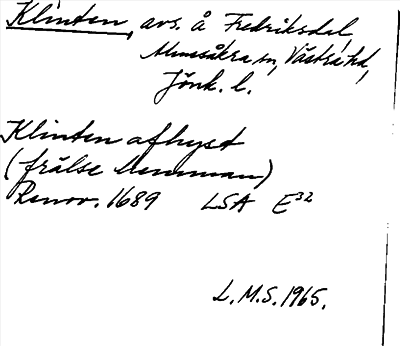 Klinten, avs. å Fredriksdal,
Almesåkra sn, Västra hd,
Jönk. l.
Klinten afhyst
(frälse
Renov. 1689 LSA E32
L.M.S. 1965.